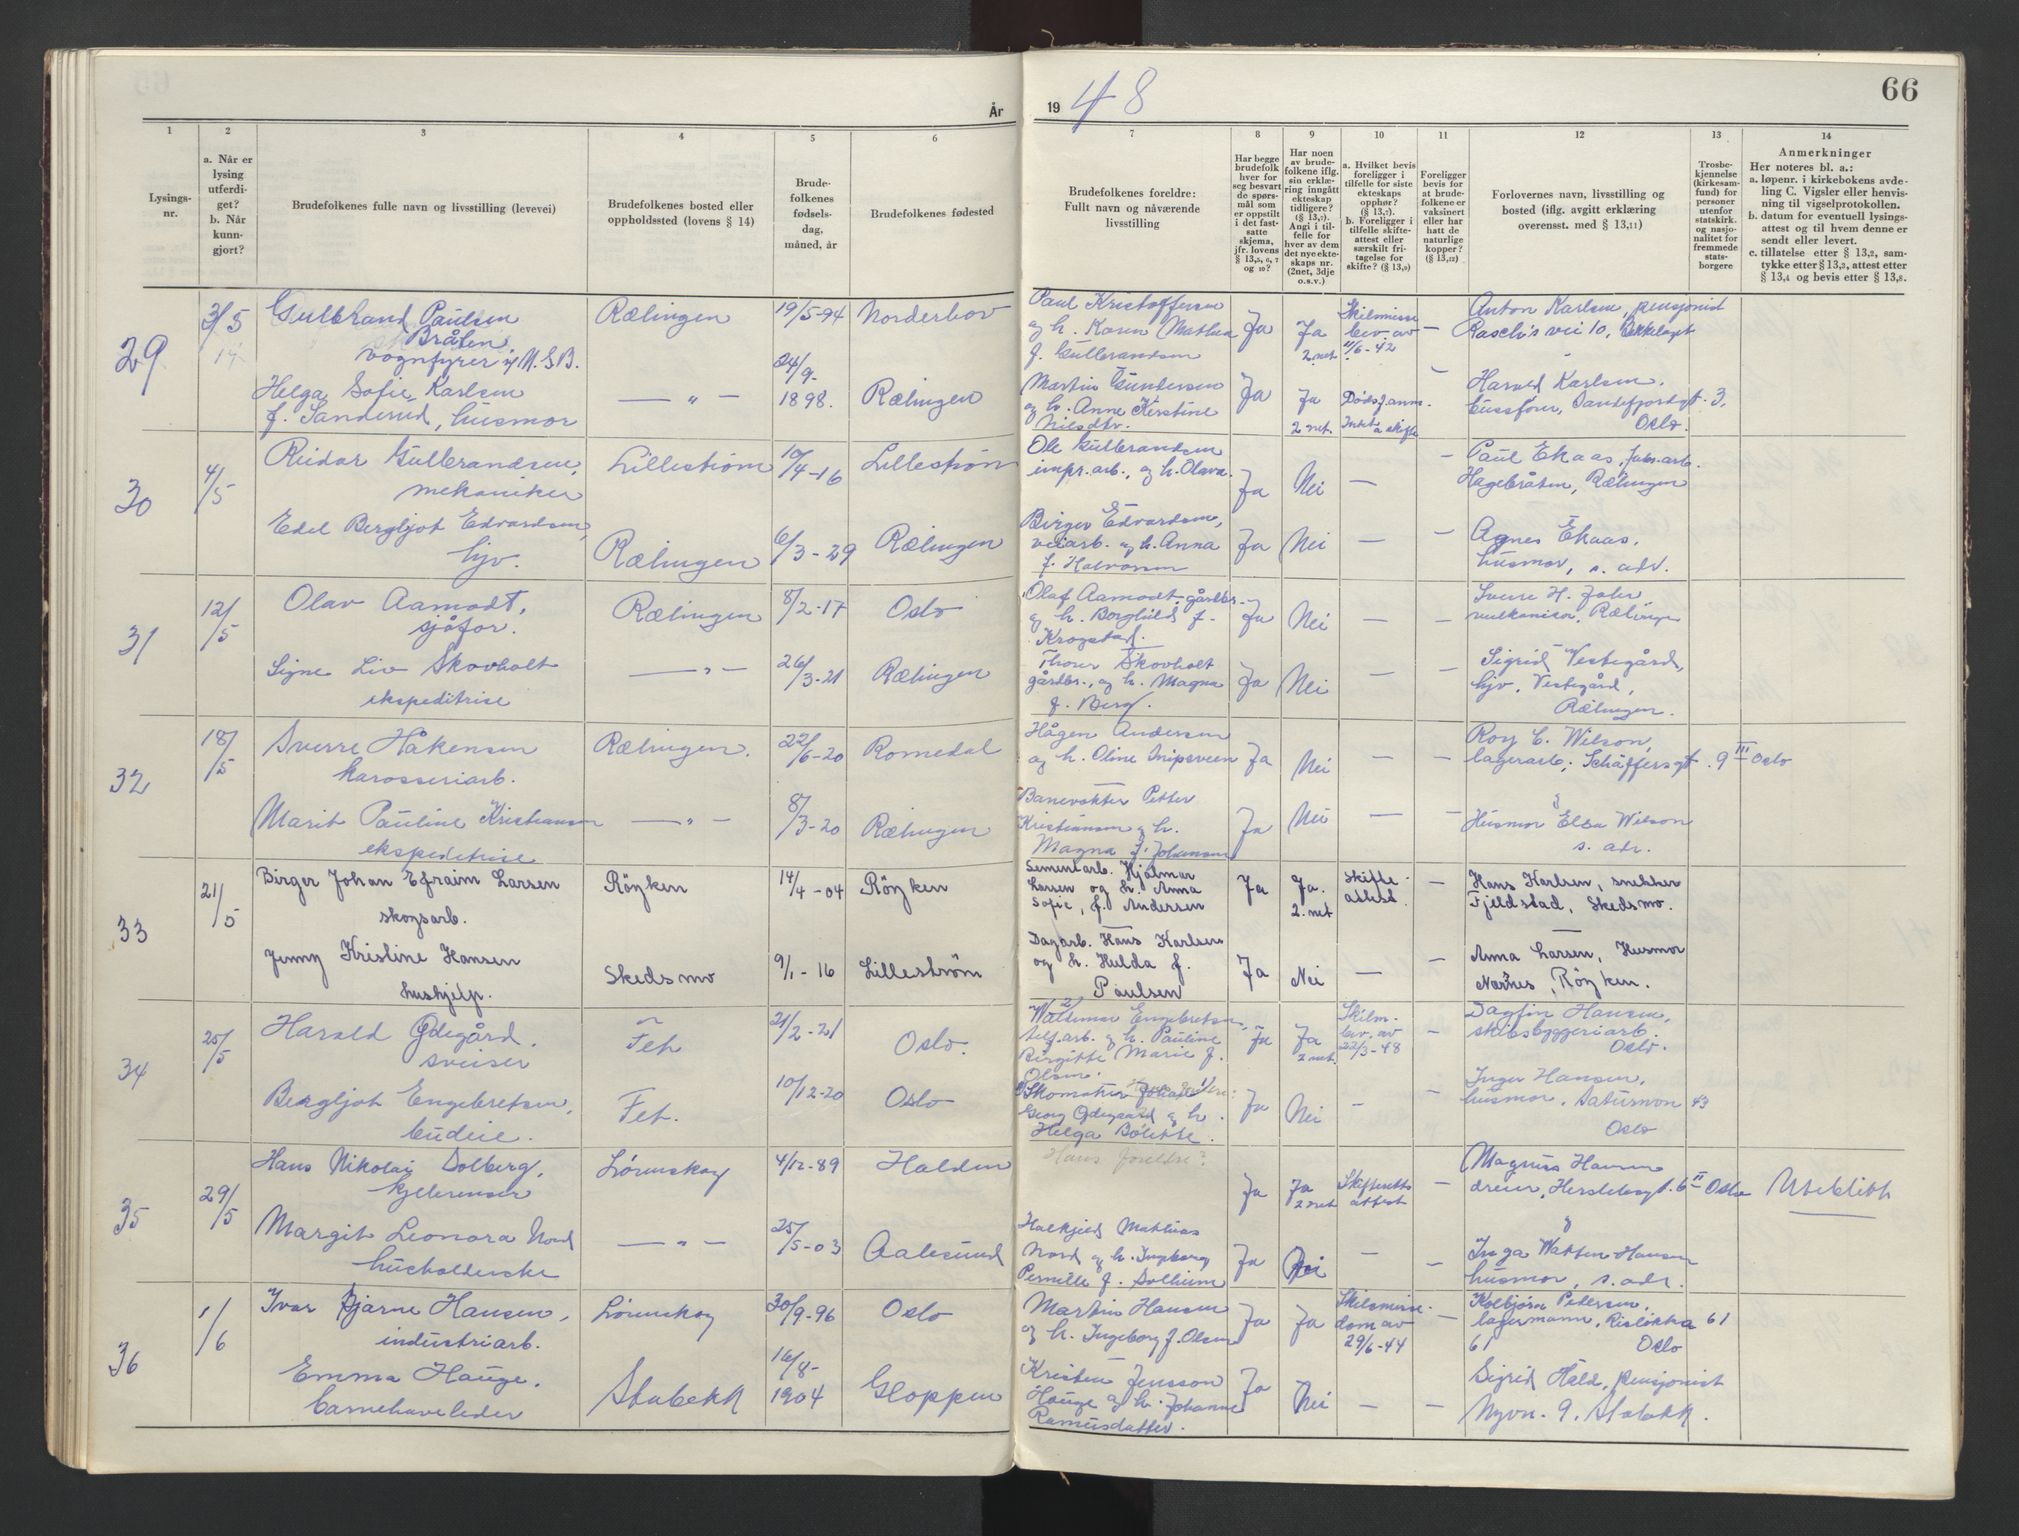 66
År
19 48
1
2
3
4
5
6
7
8
9
10
11
12
13
14
Lysings-
nr.
a. Når er
lysing
utferdi-
get?
b. Når
kunn-
gjort?
Brudefolkenes fulle navn og livsstilling (levevei)
Brudefolkenes bosted eller
oppholdssted (lovens § 14)
Brude-
folkenes
fødsels-
dag,
måned, år
Brudefolkenes fødested
Brudefolkenes foreldre:
Fullt navn og nåværende
livsstilling
Har begge
brudefolk
hver for
seg besvart
de spørs-
mål som
er oppstilt
i det fast-
satte
skjema,
jfr. lovens
§ 13,5, 6, 7
og 10?
Har noen
av brude-
folkene iflg.
sin erklæ-
ring inngått
ekteskap
tidligere?
(§ 13,7).
Angi i til-
felle for
hver av dem
det nye ekte-
skaps nr.
(2net, 3dje
o.s.v.)
a. Hvilket bevis
foreligger i
tilfelle for siste
ekteskaps
opphør?
(§ 13,7).
b. Foreligger i
tilfelle skifte-
attest eller
særskilt fri-
tagelse for
skifte? (§ 13,9)
Foreligger
bevis for
at brude-
folkene er
vaksinert
eller har
hatt de
naturlige
kopper?
(§ 13,12)
Forlovernes navn, livsstilling og
bosted (iflg. avgitt erklæring
overensst. med § 13,11)
Trosbe-
kjennelse
(kirkesam-
fund) for
personer
utenfor
statskirk.
og nasjo-
nalitet for
fremmede
stats-
borgere
Anmerkninger
Her noteres bl. a.:
a. løpenr. i kirkebokens avde-
ling C. Vigsler eller henvis-
ning til vigselprotokollen.
b. datum for eventuell lysings-
attest og til hvem denne er
sendt eller levert.
c. tillatelse etter § 13,2, sam-
tykke etter § 13,3, attest etter
§ 13,4 og bevis etter § 13,8.
29
3/5
Gulbrand Paulsen
Bråten
vognfyrer v/ N.S.B.
Rælingen
19/5-94
Norderhov
Paul Kristoffersen
og h. Karen Mathea
f. Gulbrandsen
Ja
Ja
2 net.
Skilsmisse
bev. av
11/6-42
—
Anton Karlsen, pensjonist
Rasch's vei 10, Bekkelaget
Helga Sofie Karlsen
f. Sanderud, husmor
— " —
24/9-
1898.
Rælingen
Martin Gundersen
og h. Anne Kerstine
Nilsdtr.
Ja
Ja
2 net.
Dødsf. anm.
Intet å skifte
—
Harald Karlsen.
bussfører, Sandefjordgt. 3,
Oslo.
30
4/5
Reidar Gulbrandsen,
mekaniker
Lillestrøm
10/4-16
Lillestrøm
Ole Gulbrandsen
impr.arb., og h. Olava.
Ja
Nei
—
—
Paul Ekaas, fabr.arb.
Hagebråten, Rælingen
Edel Bergljot Edvardsen,
hjv.
Rælingen
6/3-29
Rælingen
Birger Edvardsen,
veiarb. og h. Anna
f. Halvorsen
Ja
Nei
—
—
Agnes Ekaas,
husmor, s. adr.
31
12/5
Olav Aamodt,
sjåfør.
Rælingen
8/2-17
Oslo
Olaf Aamodt, gårdbr.
og h. Borghild f.
Krogstad.
Ja
Nei
—
—
Sverre H.
vulkanisør, Rælingen
Signe Liv Skovholt
ekspeditrise
— " —
26/3-21
Rælingen
Thorer Skovholt
gårdbr., og h. Magna
f. Berg.
Ja
Nei
—
—
Sigrid Vestegård,
hjv. Vestegård,
Rælingen.
32
18/5
Sverre Håkensen
karosseriarb.
Rælingen.
22/6-20
Romedal
Hågen Andersen
og h. Oline Snipsveen
Ja
Nei
—
—
Roy C. Wilson,
lagerarb., Schäffersgt. 9 III Oslo
Marit Pauline Kristiansen
ekspeditrise
— " —
8/3-20
Rælingen
Banevokter Petter
Kristiansen og h.
Magna f. Johansen
Ja
Nei
—
—
Husmor Elsa Wilson
s. adr.
33
21/5
Birger Johan Efraim Larsen
skogsarb.
Röyken
14/4-04
Röyken
Sementarb. Hjalmar
Larsen og h. Anna
Sofie, f. Andersen
Ja
Ja.
2. net
Skifte-
attest.
—
Hans Karlsen, snekker
Fjeldstad, Skedsmo.
Jenny Kristine Hansen
hushjelp.
Skedsmo
9/1-16
Lilleström
Dagarb. Hans Karlsen
og h. Hulda f.
Paulsen
Ja
Nei
—
—
Anna Larsen, Husmor
Nærnes, Röyken.
34
25/5
Harald Ødegård.
sveiser
Fet
21/2-21
Oslo.
2)
Waldemar Engebretsen,
telf.arb. og h. Pauline
Birgitte Marie f.
Olsen.
Ja
Ja
2 net.
Skilm.
bev. av
22/3-48
—
Dagfin Hansen,
skibsbyggeriarb.
Oslo.
Bergljot Engebretsen,
budeie.
Fet.
10/12-20
Oslo
Skomaker Johan
Georg Ødegaard og h.
Helga Bolette.
Ja
Nei
—
—
Inger Hansen,
husmor, Saturnvn 43
Oslo
35
29/5
Hans Nikolai Solberg,
kjelerenser
Lørenskog
4/12-89
Halden
Hans foreldre?
Ja
Ja
2 net
Skifteretts
attest
—
Magnus Hansen
dreier, Herslebsgt. 6 II Oslo
Uteblitt
Margit Leonora Nord
husholderske
— " —
25/5-03
Aalesund
Halkjeld Mathias
Nord og h. Ingeborg
Pernille f. Solheim
Ja
Nei
—
—
Inga Watten Hansen
husmor, s. adr.
36
1/6
Ivar Bjarne Hansen,
industriarb.
Lørenskog
30/9-96
Oslo
Martin Hansen
og h. Ingeborg f. Olsen
Ja
Ja
Skilsmisse-
dom av
29/6-44
—
Kolbjørn Pedersen,
lagermann, Risløkka 61
61 Oslo
Emma Hauge.
barnehaveleder
Stabekk
16/8-
1904
Gloppen
Kristen Jensson
Hauge og h. Johanne
Rasmusdatter.
Ja
Nei
—
—
Sigrid Hald, pensjonist
Nyvn. 9, Stabekk.